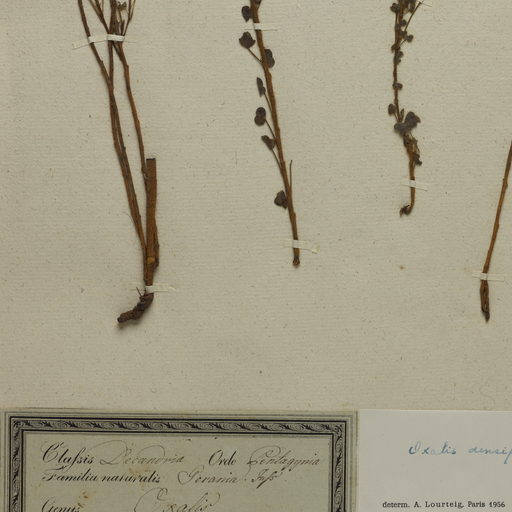 Classis Decandria Ordo Pentagynia
Familia naturalis Gerania Juss
Genus Oxalis
Oxalis
determ. A. Lourteig, Paris 1956